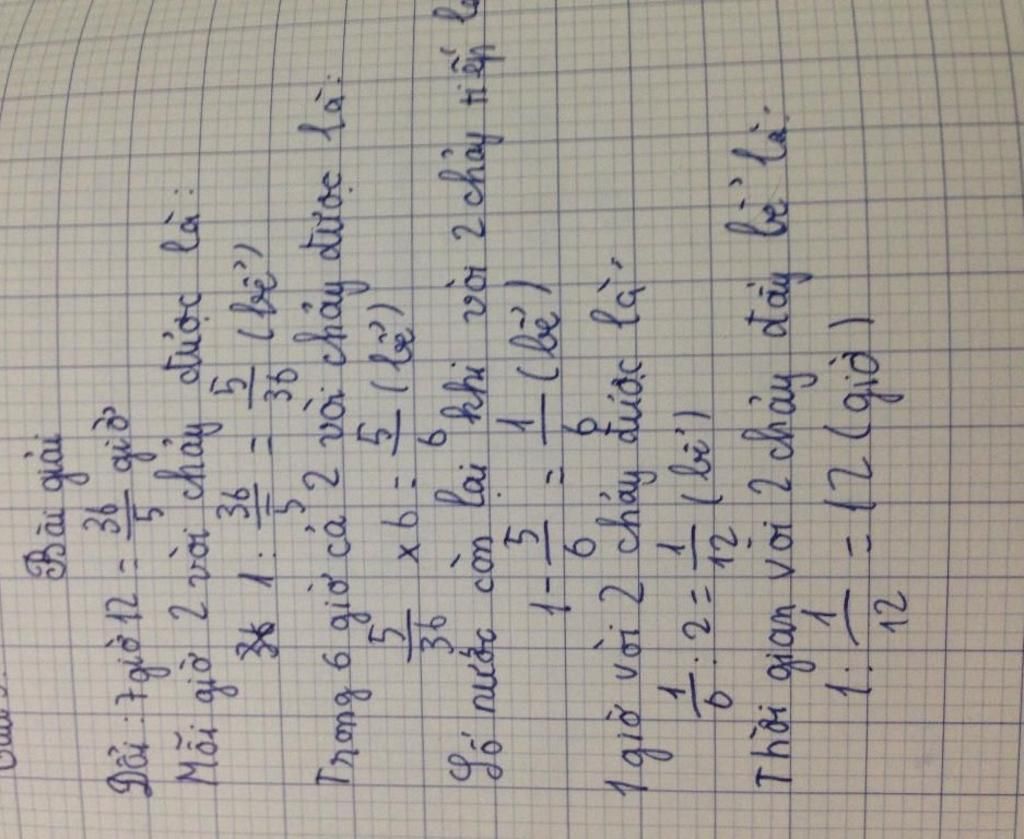 Bài giải
Đổi: 7giờ 12 = 36/5 giờ
Mỗi giờ 2 vòi chảy được là:
1 : 36/5 = 5/36 (bể)
Trong 6 giờ cả 2 vòi chảy được là:
5/36 x 6 = 5/6 (bể)
Số nước còn lại khi vòi 2 chảy tiếp
1 - 5/6 = 1/6 (bể)
1 giờ vòi 2 chảy được là,
1/6 : 2 = 1/12 (bể)
Thời gian vòi 2 chảy đầy bể là:
1 : 1/12 = 12 (giờ)